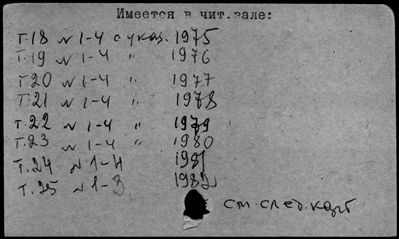 Имеется в чит. зале:
Т.18 N 1-4 с указ. 1975
Т.19 N 1-4 " 1976
Т.20 N 1-4 " 1977
Т.21 N 1-4 " 1978
Т.22 N 1-4 " 1979
Т.23 N 1-4 " 1980
Т.24 N 1-4 1981
Т.25 N 1-3 1982
см. след. карт